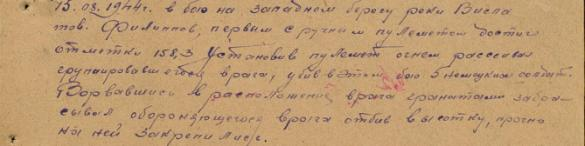 15.08.1944г. в бою на западном берегу реки Висла
тов. Филиппов, первым с ручным пулеметом достиг
отметки 158,3 установив пулемет огнем рассеивал
групировавшегося врага, убив в этом бою 5 немецких солдат.
Ворвавшись в расположение врага гранатами забра-
сывал обороняющегося врага отбив высотку, прочно
на ней закрепились.